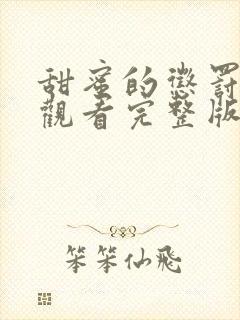 甜蜜的懲罰
觀看完整版
笨笨仙飛